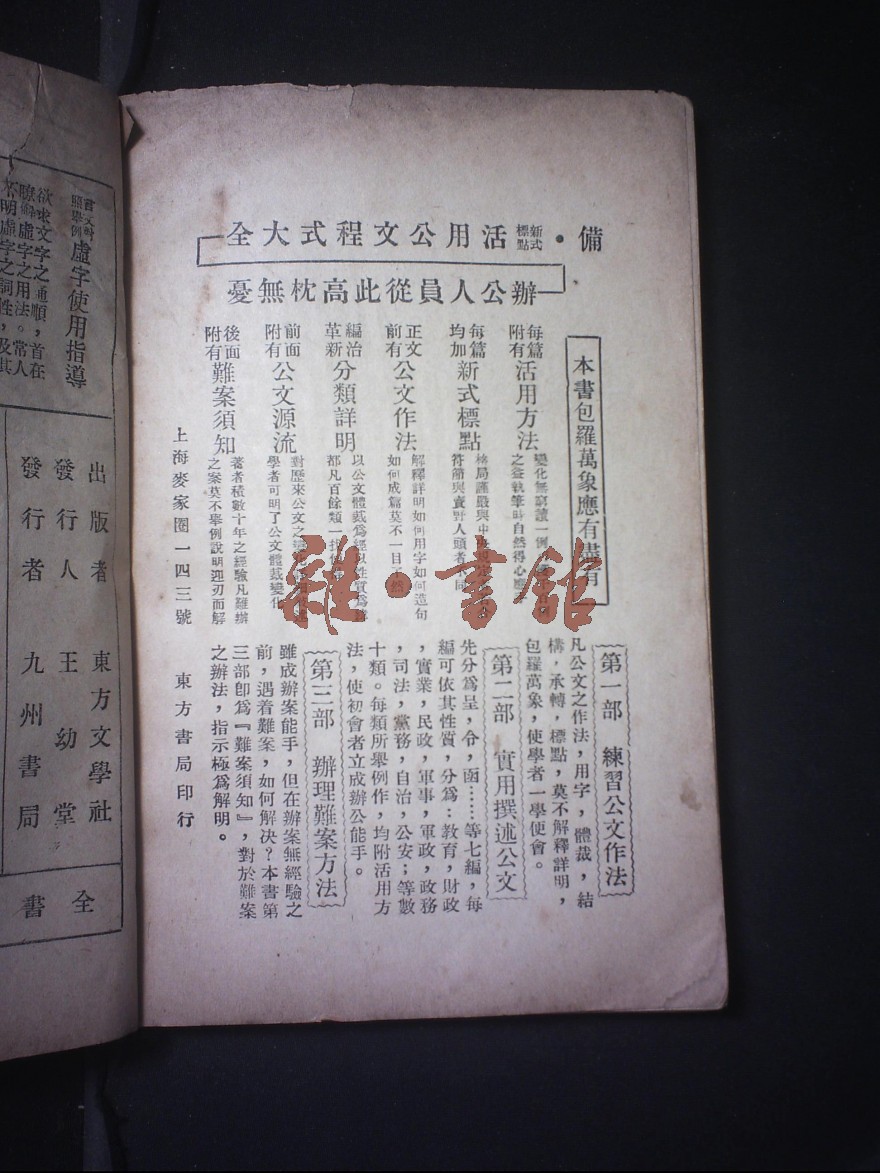 備・新式標點活用公文程式大全
辦公人員從此高枕無憂
本書包羅萬象應有盡有
每篇附有活用方法
變化無窮讀一例
之益執筆時自然得心應手
每篇均加新式標點
格局謹嚴與
符箭與賣野人頭者不同
正文前有公文作法
解釋詳明如何用字如何造句
如何成篇莫不一目了然
編治革新分類詳明
以公文體裁爲經以性質爲緯
都凡百餘類一
前面附有公文源流
對歷來公文之
學者可明了公文體裁變化
後面附有難案須知
著者積數十年之經驗凡難辦
之案莫不舉例說明迎刃而解
上海麥家圈一四三號
第一部 練習公文作法
凡公文之作法,用字,體裁,結
構,承轉,標點,莫不解釋詳明,
包羅萬象,使學者一學便會。
第二部 實用撰述公文
先分爲呈,令,函……等七編,每
編可依其性質,分爲:教育,財政
,實業,民政,軍事,軍政,政務
,司法,黨務,自治,公安;等數
十類。每類所舉例作,均附活用方
法,使初會者立成辦公能手。
第三部 辦理難案方法
雖成辦案能手,但在辦案無經驗之
前,遇着難案,如何解决?本書第
三部卽爲『難案須知』,對於難案
之辦法,指示極爲解明。
東方書局印行
雜・書館
照舉例虛字使用指導
欲求文字之通順,首在
瞭解虛字之用法。常人
不明虛字之詞性,及其
出版者 東方文學社
發行人 王幼堂
發行者 九州書局
全
書